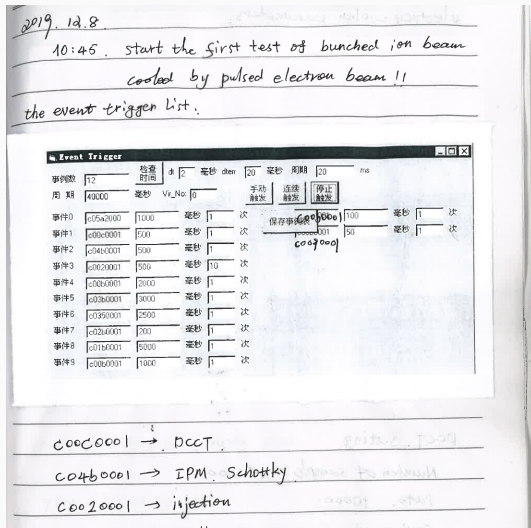 2019.12.8
10:45. start the first test of bunched ion beam
cooled by pulsed electron beam !!
the event trigger List.
Event Trigger
事例数 12 检查时间 dt 2 毫秒 dterr 20 毫秒 周期 20 ms
周 期 40000 毫秒 Vir_No: 0 手动触发 连续触发 停止触发
事件0 c05a2000 1000 毫秒 1 次 保存事例表 100 毫秒 1 次
事件1 500 毫秒 1 次 50 毫秒 1 次
事件2 c04b0001 500 毫秒 1 次
事件3 c0020001 500 毫秒 10 次
事件4 c00b0001 2000 毫秒 1 次
事件5 c03b0001 3000 毫秒 1 次
事件6 c0350001 2500 毫秒 1 次
事件7 c02b0001 200 毫秒 1 次
事件8 c01b0001 5000 毫秒 1 次
事件9 1000 毫秒 1 次
C00C0001 → DCCT.
C04b0001 → IPM. Schottky
C0020001 → injection